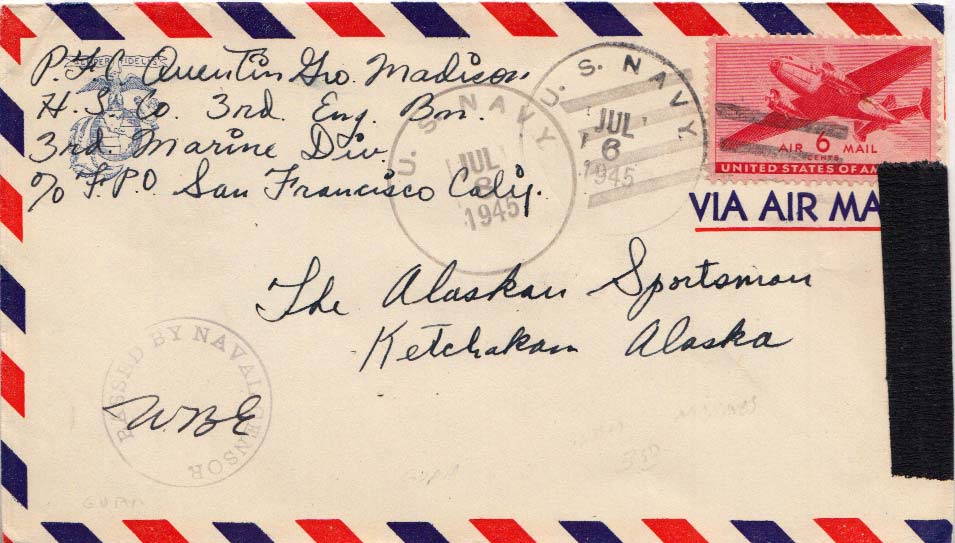 SEMPER FIDELIS
P.F.C. Quentin Geo. Madison
H.S. Co. 3rd. Eng. Bn.
3rd. Marine Div.
c/o F.P.O San Francisco Calif.
U. S. NAVY
JUL
6
1945
U. S. NAVY
JUL
6
1945
AIR 6 MAIL
CENTS
UNITED STATES OF AM
VIA AIR MA
The Alaskan Sportsman
Ketchakan Alaska
PASSED BY NAVAL CENSOR
GUAM